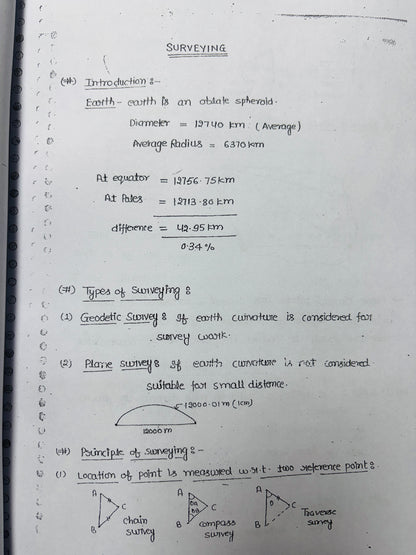 SURVEYING
(#) Introduction :-
Earth - earth is an oblate spheroid.
Diameter = 12740 km (Average)
Average Radius = 6370 km
At equator = 12756.75 km
At Poles = 12713.80 km
difference = 42.95 km
0.34 %
(#) Types of Surveying :
(1) Geodetic Survey : If earth curvature is considered for
survey work.
(2) Plane survey : If earth curvature is not considered
suitable for small distance.
12000.01 m (1cm)
12000 m
(#) Principle of surveying :-
(1) Location of point is measured w.r.t. two reference point :
A
B
C
chain
survey
A
B
C
compass
survey
A
B
C
Traverse
survey